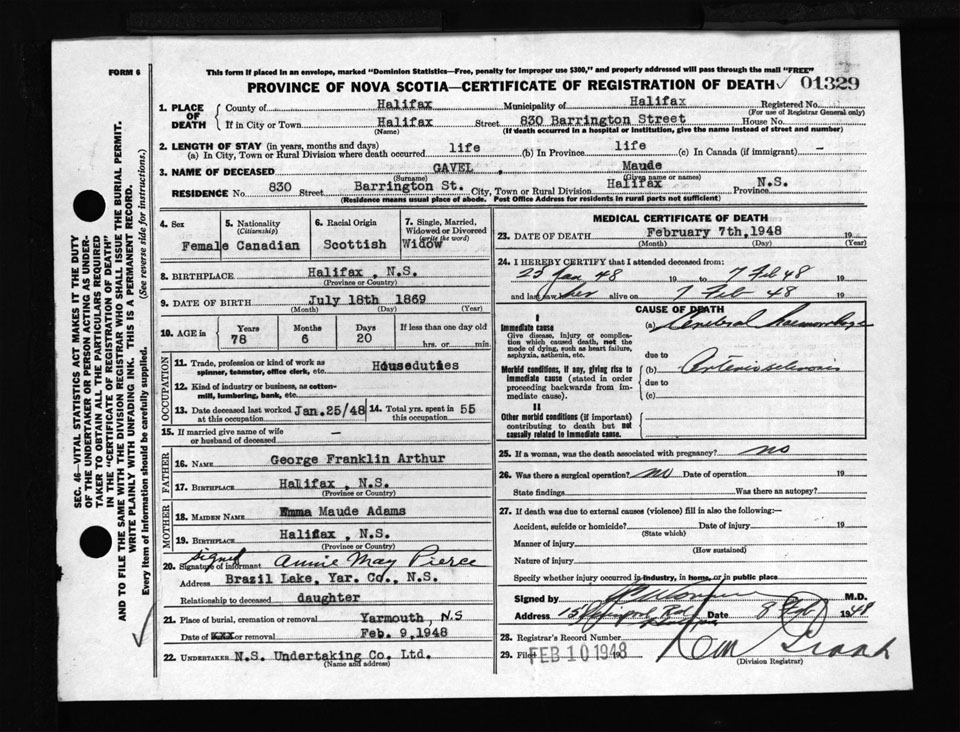 FORM 6
This form if placed in an envelope, marked "Dominion Statistics—Free, penalty for improper use $300," and properly addressed will pass through the mail "FREE"
PROVINCE OF NOVA SCOTIA—CERTIFICATE OF REGISTRATION OF DEATH ✓ 01329
1. PLACE OF DEATH
County of Halifax Municipality of Halifax Registered No.
(For use of Registrar General only)
If in City or Town Halifax Street 830 Barrington Street House No.
(Name) (If death occurred in a hospital or institution, give the name instead of street and number)
2. LENGTH OF STAY (in years, months and days)
(a) In City, Town or Rural Division where death occurred life (b) In Province life (c) In Canada (if immigrant) —
3. NAME OF DECEASED GAVEL, Maude
(Surname) (Given name or names)
RESIDENCE No. 830 Street Barrington St. City, Town or Rural Division Halifax Province N.S.
(Residence means usual place of abode. Post Office Address for residents in rural parts not sufficient)
4. Sex Female
5. Nationality (Citizenship) Canadian
6. Racial Origin Scottish
7. Single, Married, Widowed or Divorced (write the word) Widow
8. BIRTHPLACE Halifax, N.S.
(Province or Country)
9. DATE OF BIRTH July 18th 1869
(Month) (Day) (Year)
10. AGE in Years 78 Months 6 Days 20 If less than one day old hrs. or min.
OCCUPATION
11. Trade, profession or kind of work as spinner, teamster, office clerk, etc. Houseduties
12. Kind of industry or business, as cotton-mill, lumbering, bank, etc.
13. Date deceased last worked at this occupation Jan.25/48
14. Total yrs. spent in this occupation 55
15. If married give name of wife or husband of deceased —
FATHER
16. NAME George Franklin Arthur
17. BIRTHPLACE Halifax, N.S.
(Province or Country)
MOTHER
18. MAIDEN NAME Emma Maude Adams
19. BIRTHPLACE Halifax, N.S.
(Province or Country)
signed
20. Signature of informant Annie May Pierce
Address Brazil Lake, Yar. Co., N.S.
Relationship to deceased daughter
21. Place of burial, cremation or removal Yarmouth, N.S
Date of XXX or removal Feb. 9, 1948
22. UNDERTAKER N.S. Undertaking Co. Ltd.
(Name and address)
MEDICAL CERTIFICATE OF DEATH
23. DATE OF DEATH February 7th, 1948 19
(Month) (Day) (Year)
24. I HEREBY CERTIFY that I attended deceased from:
25 Jan 48 19 to 7 Feb 48 19
and last saw her alive on 7 Feb 48 19
CAUSE OF DEATH
I
Immediate cause
Give disease, injury or complication which caused death, not the mode of dying, such as heart failure, asphyxia, asthenia, etc.
(a) Cerebral haemorrhage
due to
Morbid conditions, if any, giving rise to immediate cause (stated in order proceeding backwards from immediate cause).
(b) Arteriosclerosis
due to
(c)
II
Other morbid conditions (if important) contributing to death but not causally related to immediate cause.
25. If a woman, was the death associated with pregnancy? no
26. Was there a surgical operation? no Date of operation 19
State findings Was there an autopsy?
27. If death was due to external causes (violence) fill in also the following:—
Accident, suicide or homicide? Date of injury 19
(State which)
Manner of injury
(How sustained)
Nature of injury
Specify whether injury occurred in industry, in home, or in public place
Signed by M.D.
Address Date 8 Feb 1948
28. Registrar's Record Number
29. Filed FEB 10 1948 19
(Division Registrar)
SEC. 46—VITAL STATISTICS ACT MAKES IT THE DUTY
OF THE UNDERTAKER OR PERSON ACTING AS UNDER-
TAKER TO OBTAIN ALL THE PARTICULARS REQUIRED
IN THE "CERTIFICATE OF REGISTRATION OF DEATH"
AND TO FILE THE SAME WITH THE DIVISION REGISTRAR WHO SHALL ISSUE THE BURIAL PERMIT.
WRITE PLAINLY WITH UNFADING INK. THIS IS A PERMANENT RECORD.
Every item of information should be carefully supplied. (See reverse side for instructions.)